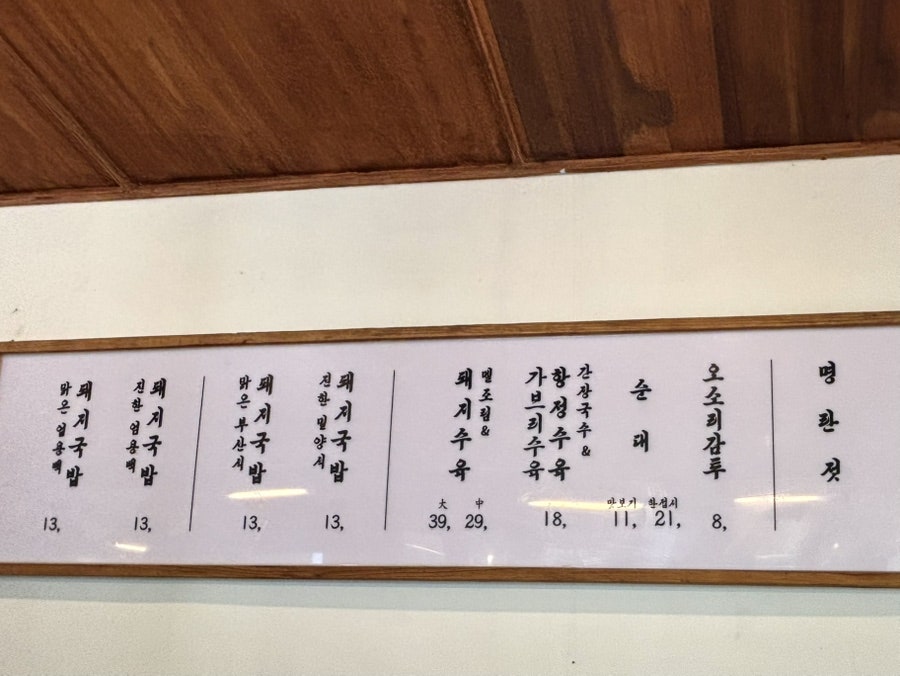 명란젓
오소리감투
8,
순대
한접시 맛보기
21, 11,
간장국수 &
항정수육
가브리수육
18,
멜조림 &
돼지수육
中 大
29, 39,
돼지국밥
진한 밀양식
13,
돼지국밥
맑은 부산식
13,
돼지국밥
진한 엄용백
13,
돼지국밥
맑은 엄용백
13,